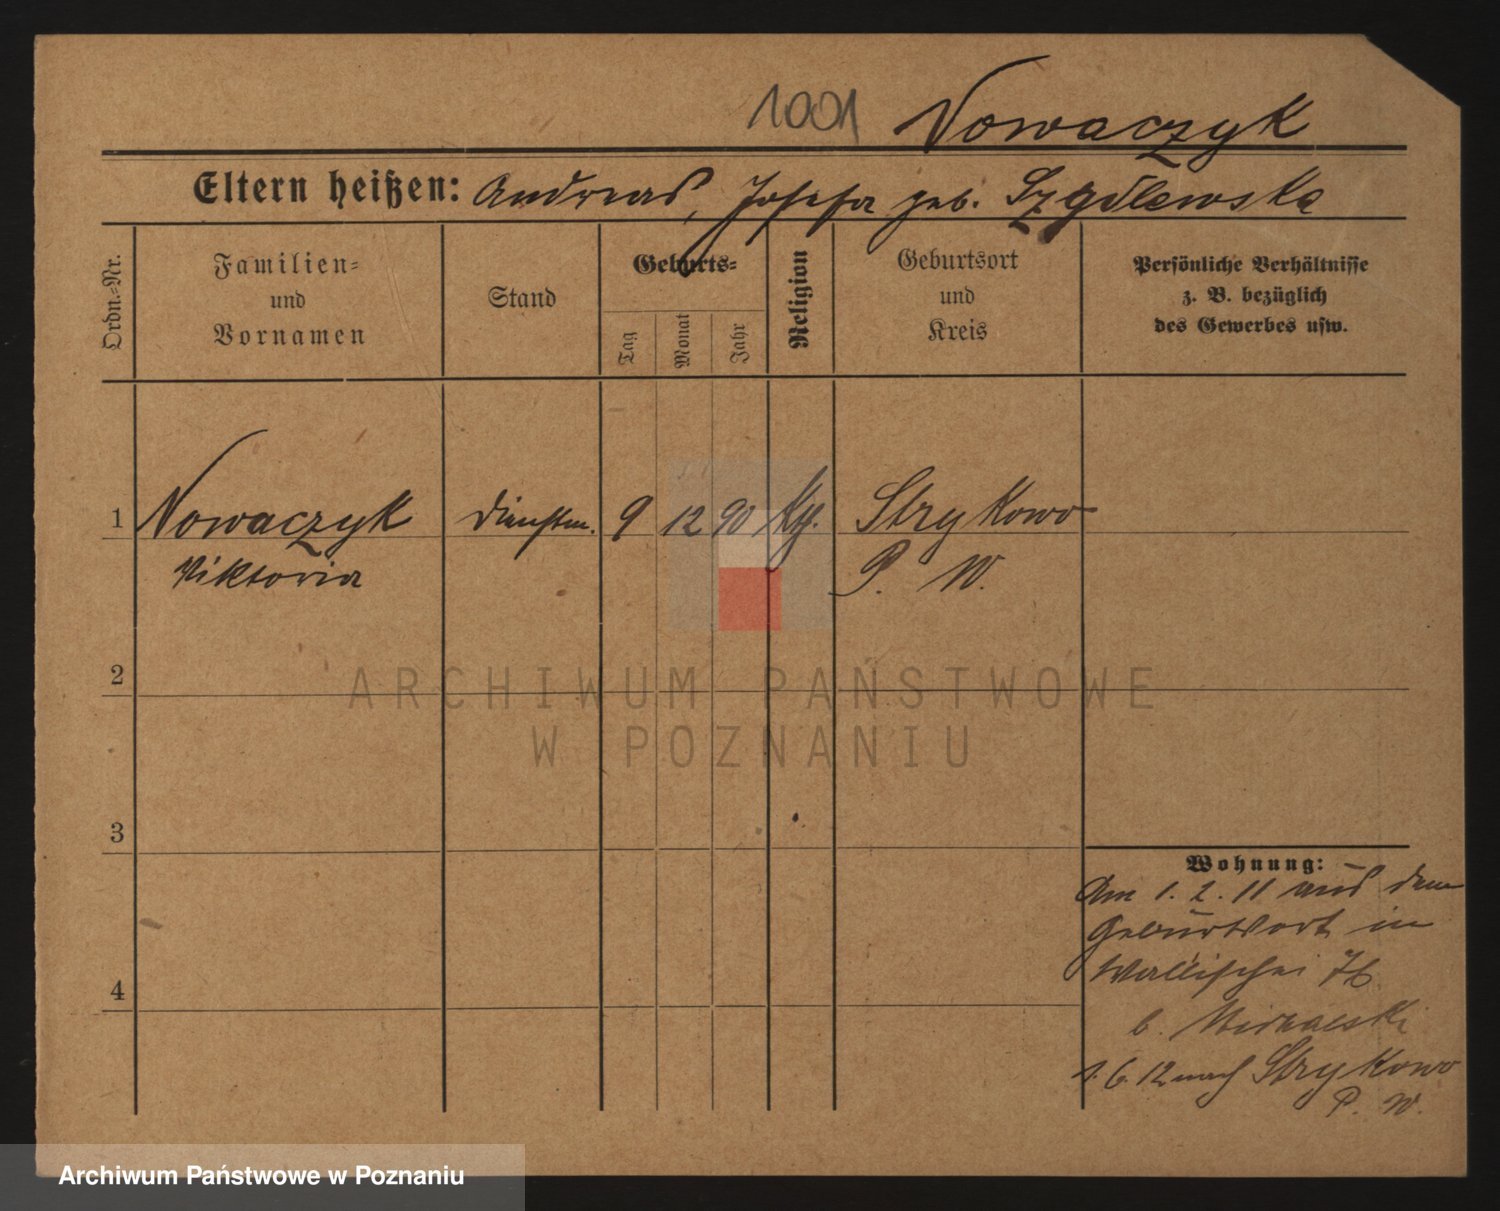 1001 Nowaczyk
Eltern heißen: Andreas, Josefa geb. Szydlewska
Ordn.-Nr.
Familien-
und
Vornamen
Stand
Geburts-
Tag
Monat
Jahr
Religion
Geburtsort
und
Kreis
Persönliche Verhältnisse
z. B. bezüglich
des Gewerbes usw.
1 Nowaczyk Dienstm. 9 12 90 Kth. Strykowo
Viktoria P. W.
2
3
4
Wohnung:
Am 1. 2. 11 aus dem
Geburtsort in
Wallischei
b.
1. 6. 12 nach Strykowo
P. W.
ARCHIWUM PAŃSTWOWE
W POZNANIU
Archiwum Państwowe w Poznaniu